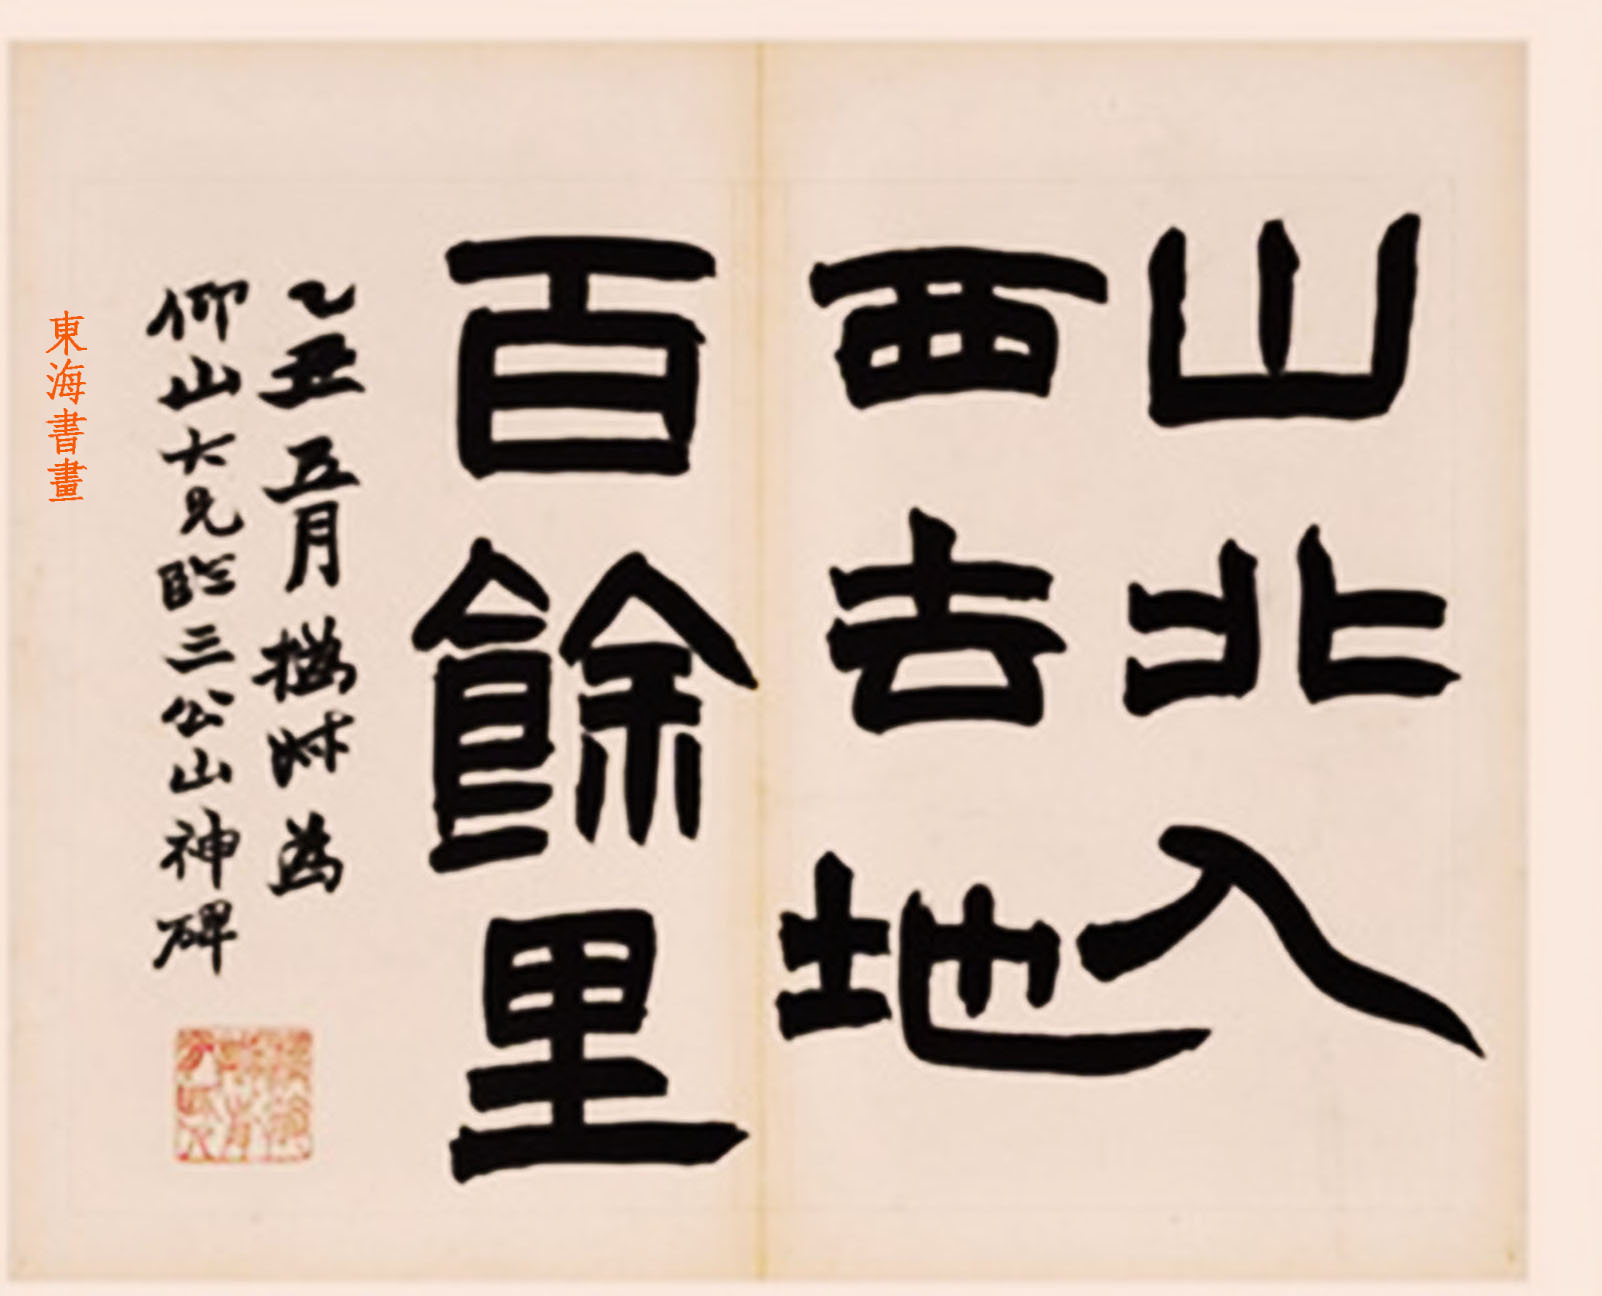 山北入
西去地
百餘里
乙丑五月撝叔為
仰山大兄臨三公山神碑
東海書畫